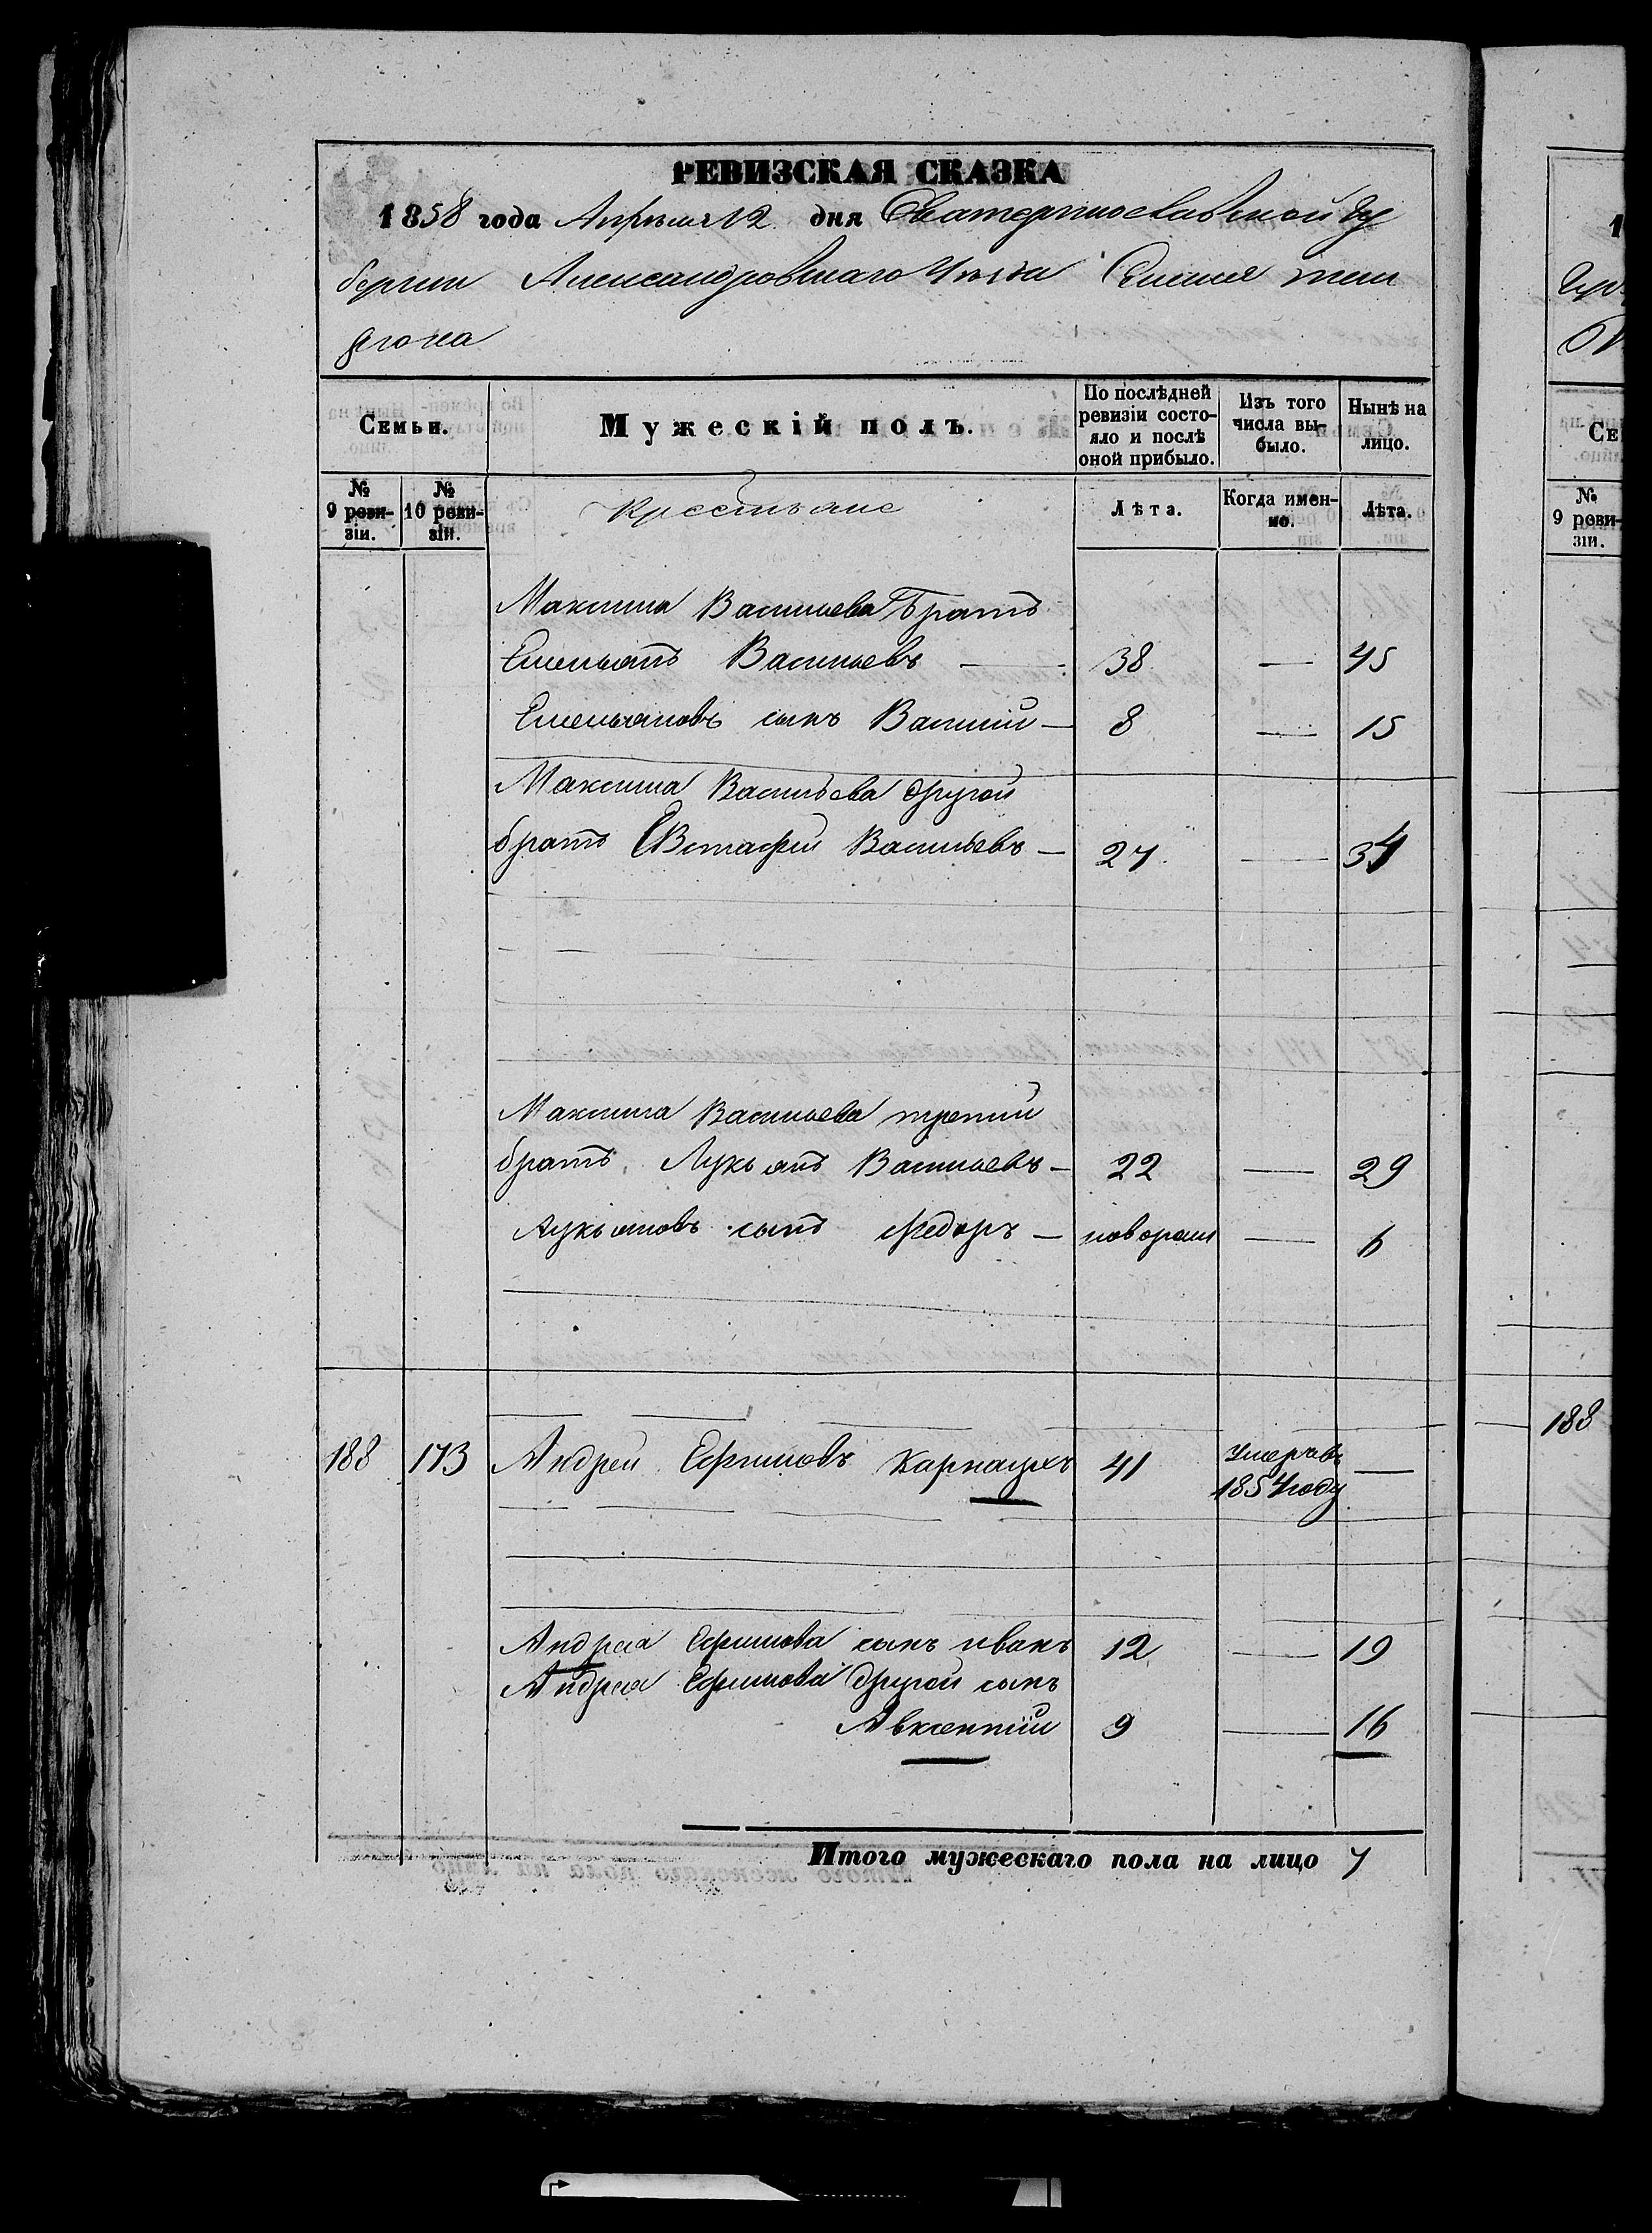 РЕВИЗСКАЯ СКАЗКА
1858 года Апреля 12 дня Екатеринославской гу
бернiи Александровскаго Уѣзда Села
Семьи.
Мужескій полъ.
По послѣдней ревизіи состояло и послѣ оной прибыло.
Изъ того числа выбыло.
Нынѣ на лицо.
№ 9 ревизіи.
№ 10 ревизіи.
Крестьяне
Лѣта.
Когда именно.
Лѣта.
Максима Васильева братъ
Емельянъ Васильевъ — 38 — 45
Емельяновъ сынъ Василiй — 8 — 15
Максима Васильева другой
братъ Евстафiй Васильевъ — 27 — 34
Максима Васильева третiй
братъ Лукьянъ Васильевъ — 22 — 29
Лукьяновъ сынъ Федоръ — новорожд — 6
188 173 Андрей Ефимовъ Карнаухъ 41 Умеръ въ 1854 году —
Андрея Ефимова сынъ Иванъ 12 — 19
Андрея Ефимова другой сынъ
Авксентiй 9 — 16
Итого мужескаго пола на лицо 7
1
№ 9 реви-
зіи.
188